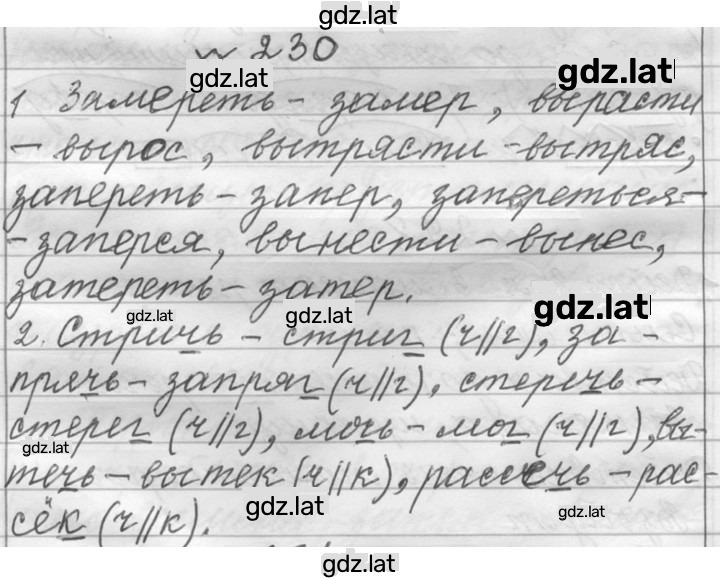 gdz.lat
№ 230
gdz.lat
gdz.lat
1 Замереть - замер, вырасти
- вырос, вытрясти - вытряс,
запереть - запер, запереться -
- заперся, вынести - вынес,
затереть - затер.
gdz.lat
gdz.lat
gdz.lat
2. Стричь - стриг (ч//г), за -
прячь - запряг (ч//г), стеречь -
стерег (ч//г), мочь - мог (ч//г), вы-
gdz.lat
течь - вытек (ч//к), рассечь - рас-
сёк (ч//к).
gdz.lat
gdz.lat
gdz.lat